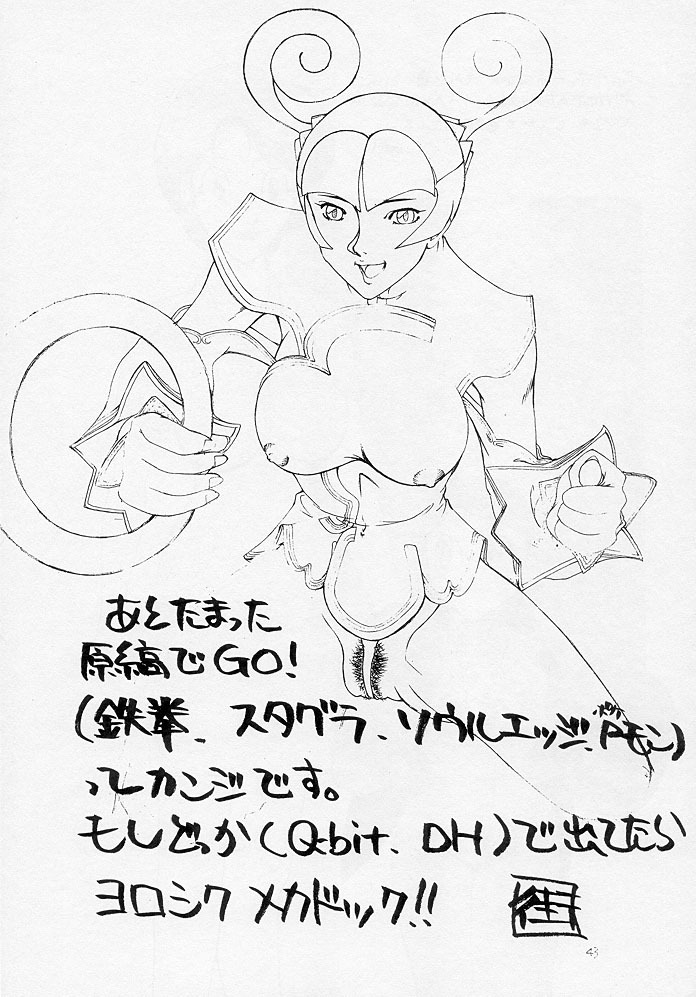 あとたまった
原稿でGO!
(鉄拳、スタグラ、ソウルエッジ、Pモン)
ってカンジです。
もしどっか(Q-bit、DH)で出てたら
ヨロシク メカドック!!
43